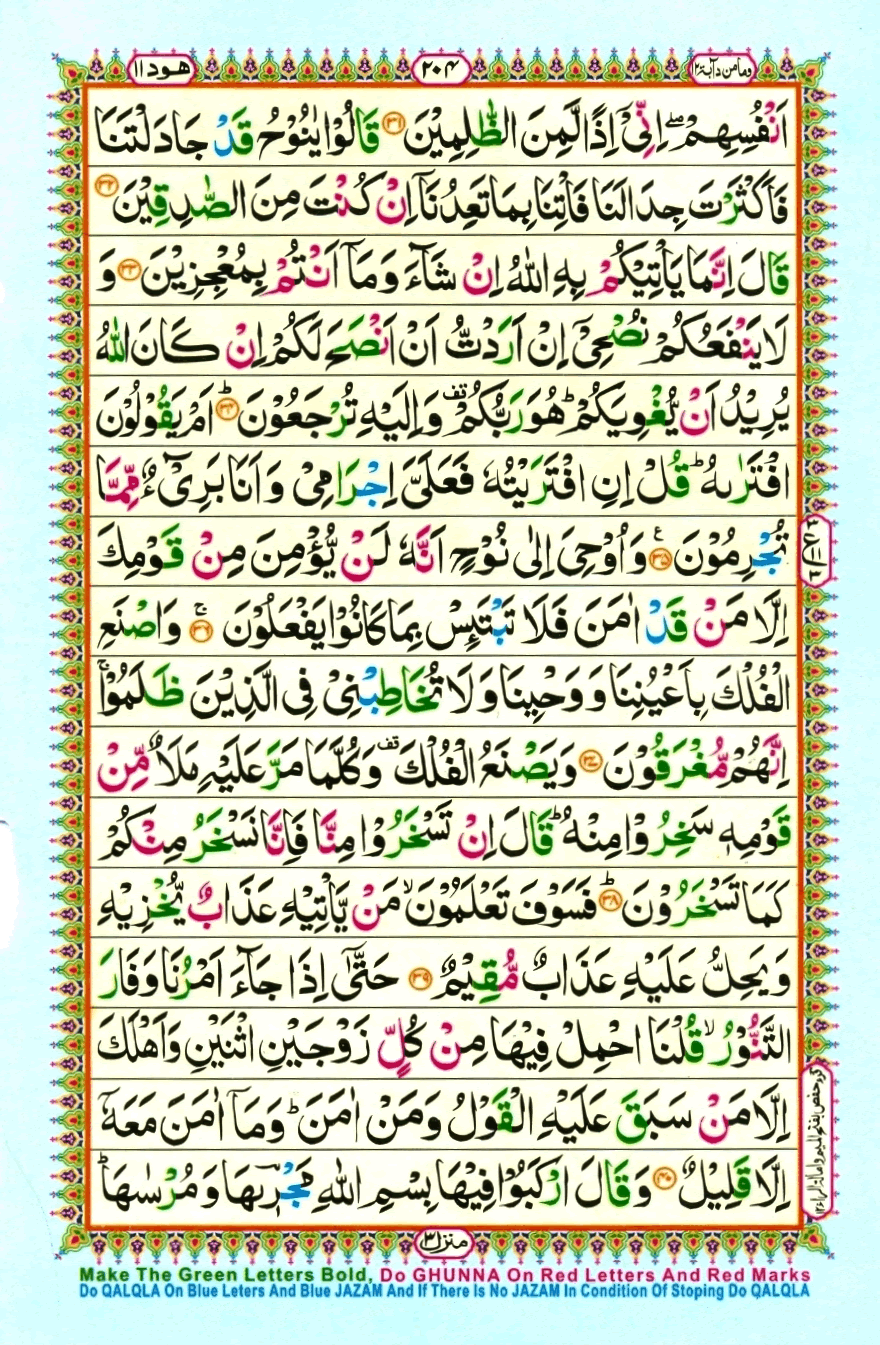 وما من دآبة ۱۲
۲۰۴
هود ۱۱
اَنْفُسِهِمْ ۖۚ اِنِّیْۤ اِذًا لَّمِنَ الظّٰلِمِیْنَ ۝۳۱ قَالُوْا یٰنُوْحُ قَدْ جَادَلْتَنَا
فَاَكْثَرْتَ جِدَالَنَا فَاْتِنَا بِمَا تَعِدُنَاۤ اِنْ كُنْتَ مِنَ الصّٰدِقِیْنَ ۝۳۲
قَالَ اِنَّمَا یَاْتِیْكُمْ بِهِ اللّٰهُ اِنْ شَآءَ وَ مَاۤ اَنْتُمْ بِمُعْجِزِیْنَ ۝۳۳ وَ
لَا یَنْفَعُكُمْ نُصْحِیْۤ اِنْ اَرَدْتُّ اَنْ اَنْصَحَ لَكُمْ اِنْ كَانَ اللّٰهُ
یُرِیْدُ اَنْ یُّغْوِیَكُمْ ؕ هُوَ رَبُّكُمْ ۫ وَ اِلَیْهِ تُرْجَعُوْنَ ؕ۝۳۴ اَمْ یَقُوْلُوْنَ
افْتَرٰىهُ ؕ قُلْ اِنِ افْتَرَیْتُهٗ فَعَلَیَّ اِجْرَامِیْ وَ اَنَا بَرِیْٓءٌ مِّمَّا
تُجْرِمُوْنَ ۠۝۳۵ وَ اُوْحِیَ اِلٰى نُوْحٍ اَنَّهٗ لَنْ یُّؤْمِنَ مِنْ قَوْمِكَ
اِلَّا مَنْ قَدْ اٰمَنَ فَلَا تَبْتَىِٕسْ بِمَا كَانُوْا یَفْعَلُوْنَ ۚۖ۝۳۶ وَ اصْنَعِ
الْفُلْكَ بِاَعْیُنِنَا وَ وَحْیِنَا وَ لَا تُخَاطِبْنِیْ فِی الَّذِیْنَ ظَلَمُوْا ۚ
اِنَّهُمْ مُّغْرَقُوْنَ ۝۳۷ وَ یَصْنَعُ الْفُلْكَ ۫ وَ كُلَّمَا مَرَّ عَلَیْهِ مَلَاٌ مِّنْ
قَوْمِهٖ سَخِرُوْا مِنْهُ ؕ قَالَ اِنْ تَسْخَرُوْا مِنَّا فَاِنَّا نَسْخَرُ مِنْكُمْ
كَمَا تَسْخَرُوْنَ ؕ۝۳۸ فَسَوْفَ تَعْلَمُوْنَ ۙ مَنْ یَّاْتِیْهِ عَذَابٌ یُّخْزِیْهِ
وَ یَحِلُّ عَلَیْهِ عَذَابٌ مُّقِیْمٌ ۝۳۹ حَتّٰۤى اِذَا جَآءَ اَمْرُنَا وَ فَارَ
التَّنُّوْرُ ۙ قُلْنَا احْمِلْ فِیْهَا مِنْ كُلٍّ زَوْجَیْنِ اثْنَیْنِ وَ اَهْلَكَ
اِلَّا مَنْ سَبَقَ عَلَیْهِ الْقَوْلُ وَ مَنْ اٰمَنَ ؕ وَ مَاۤ اٰمَنَ مَعَهٗۤ
اِلَّا قَلِیْلٌ ۝۴۰ وَ قَالَ ارْكَبُوْا فِیْهَا بِسْمِ اللّٰهِ مَجْرٖىهَا وَ مُرْسٰىهَا ؕ
منزل ۳
Make The Green Letters Bold, Do GHUNNA On Red Letters And Red Marks
Do QALQLA On Blue Leters And Blue JAZAM And If There Is No JAZAM In Condition Of Stoping Do QALQLA